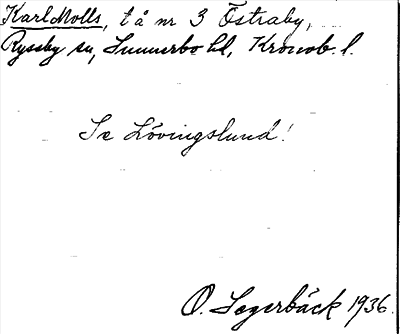 Karl Molls, t å nr 3 Östraby,
Ryssby sn, Sunnerbo hd, Kronob. l.
Se Lövingslund!
O. Segerbäck 1936.